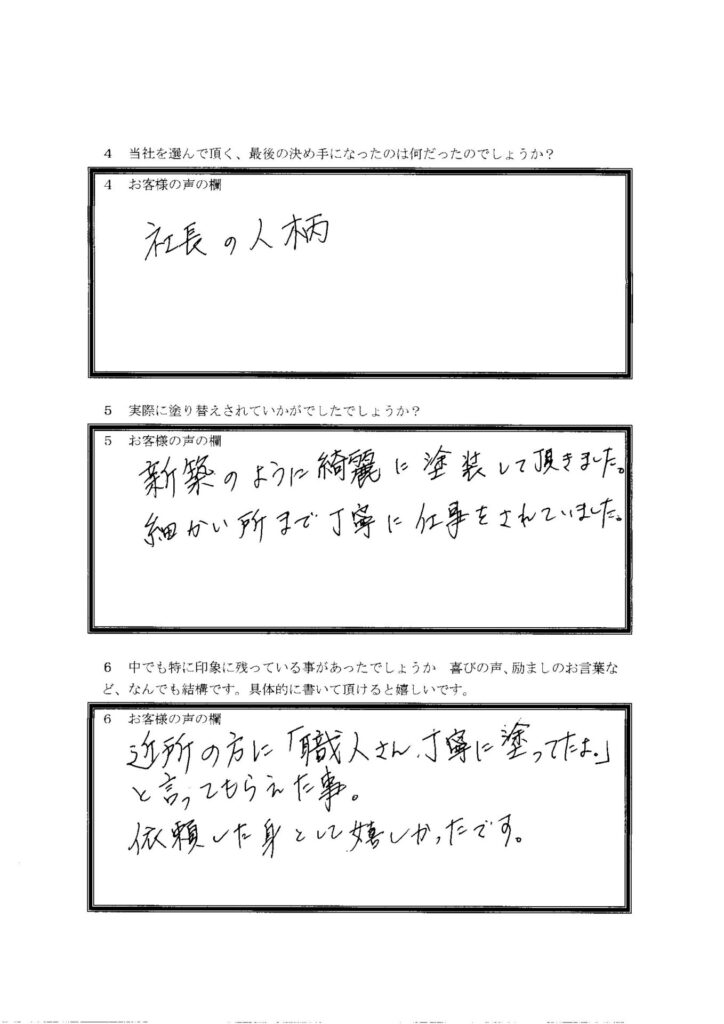 4 当社を選んで頂く、最後の決め手になったのは何だったのでしょうか？
4 お客様の声の欄
社長の人柄
5 実際に塗り替えされていかがでしたでしょうか？
5 お客様の声の欄
新築のように綺麗に塗装して頂きました。
細かい所まで丁寧に仕事をされていました。
6 中でも特に印象に残っている事があったでしょうか 喜びの声、励ましのお言葉な
ど、なんでも結構です。具体的に書いて頂けると嬉しいです。
6 お客様の声の欄
近所の方に「職人さん、丁寧に塗ってたよ。」
と言ってもらえた事。
依頼した身として嬉しかったです。